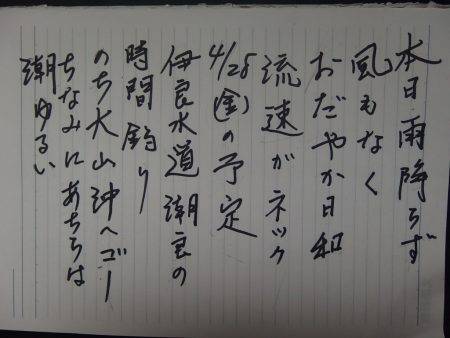 本日雨降らず
風もなく
おだやか日和
流速がネック
4/28(金)の予定
伊良水道潮良の
時間釣り
のち大山沖へゴー
ちなみにあちらは
潮ゆるい